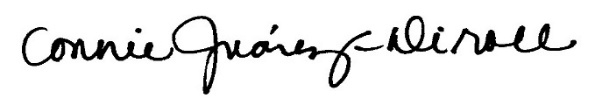 Connie Juárez-Diroll